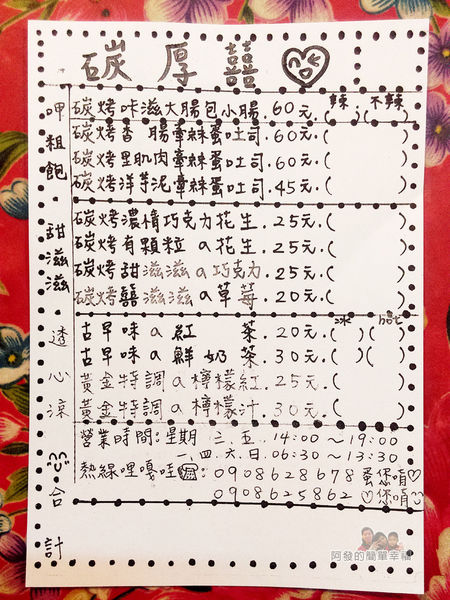 碳厚囍
呷粗飽·甜滋滋·透心涼 合計
辣 不辣
碳烤咔滋大腸包小腸.60元.( ; )( )
碳烤香腸韋辣蛋吐司.60元.( )
碳烤里肌肉韋辣蛋吐司.60元.( )
碳烤洋芋泥韋辣蛋吐司.45元.( )
碳烤濃情巧克力花生.25元.( )
碳烤有顆粒a花生.25元.( )
碳烤甜滋滋a巧克力.25元.( )
碳烤囍滋滋a草莓.20元.( )
冰 熱
古早味a紅茶.20元.( )( )
古早味a鮮奶茶.30元.( )( )
黃金特調a檸檬紅.25元.( )
黃金特調a檸檬汁.30元.( )
營業時間:星期 三.五. 14:00~19:00
一.四.六.日.06:30~13:30
熱線哩嘎哇:0908628678 蛋您唷
0908625862 您唷
阿發的簡單幸福